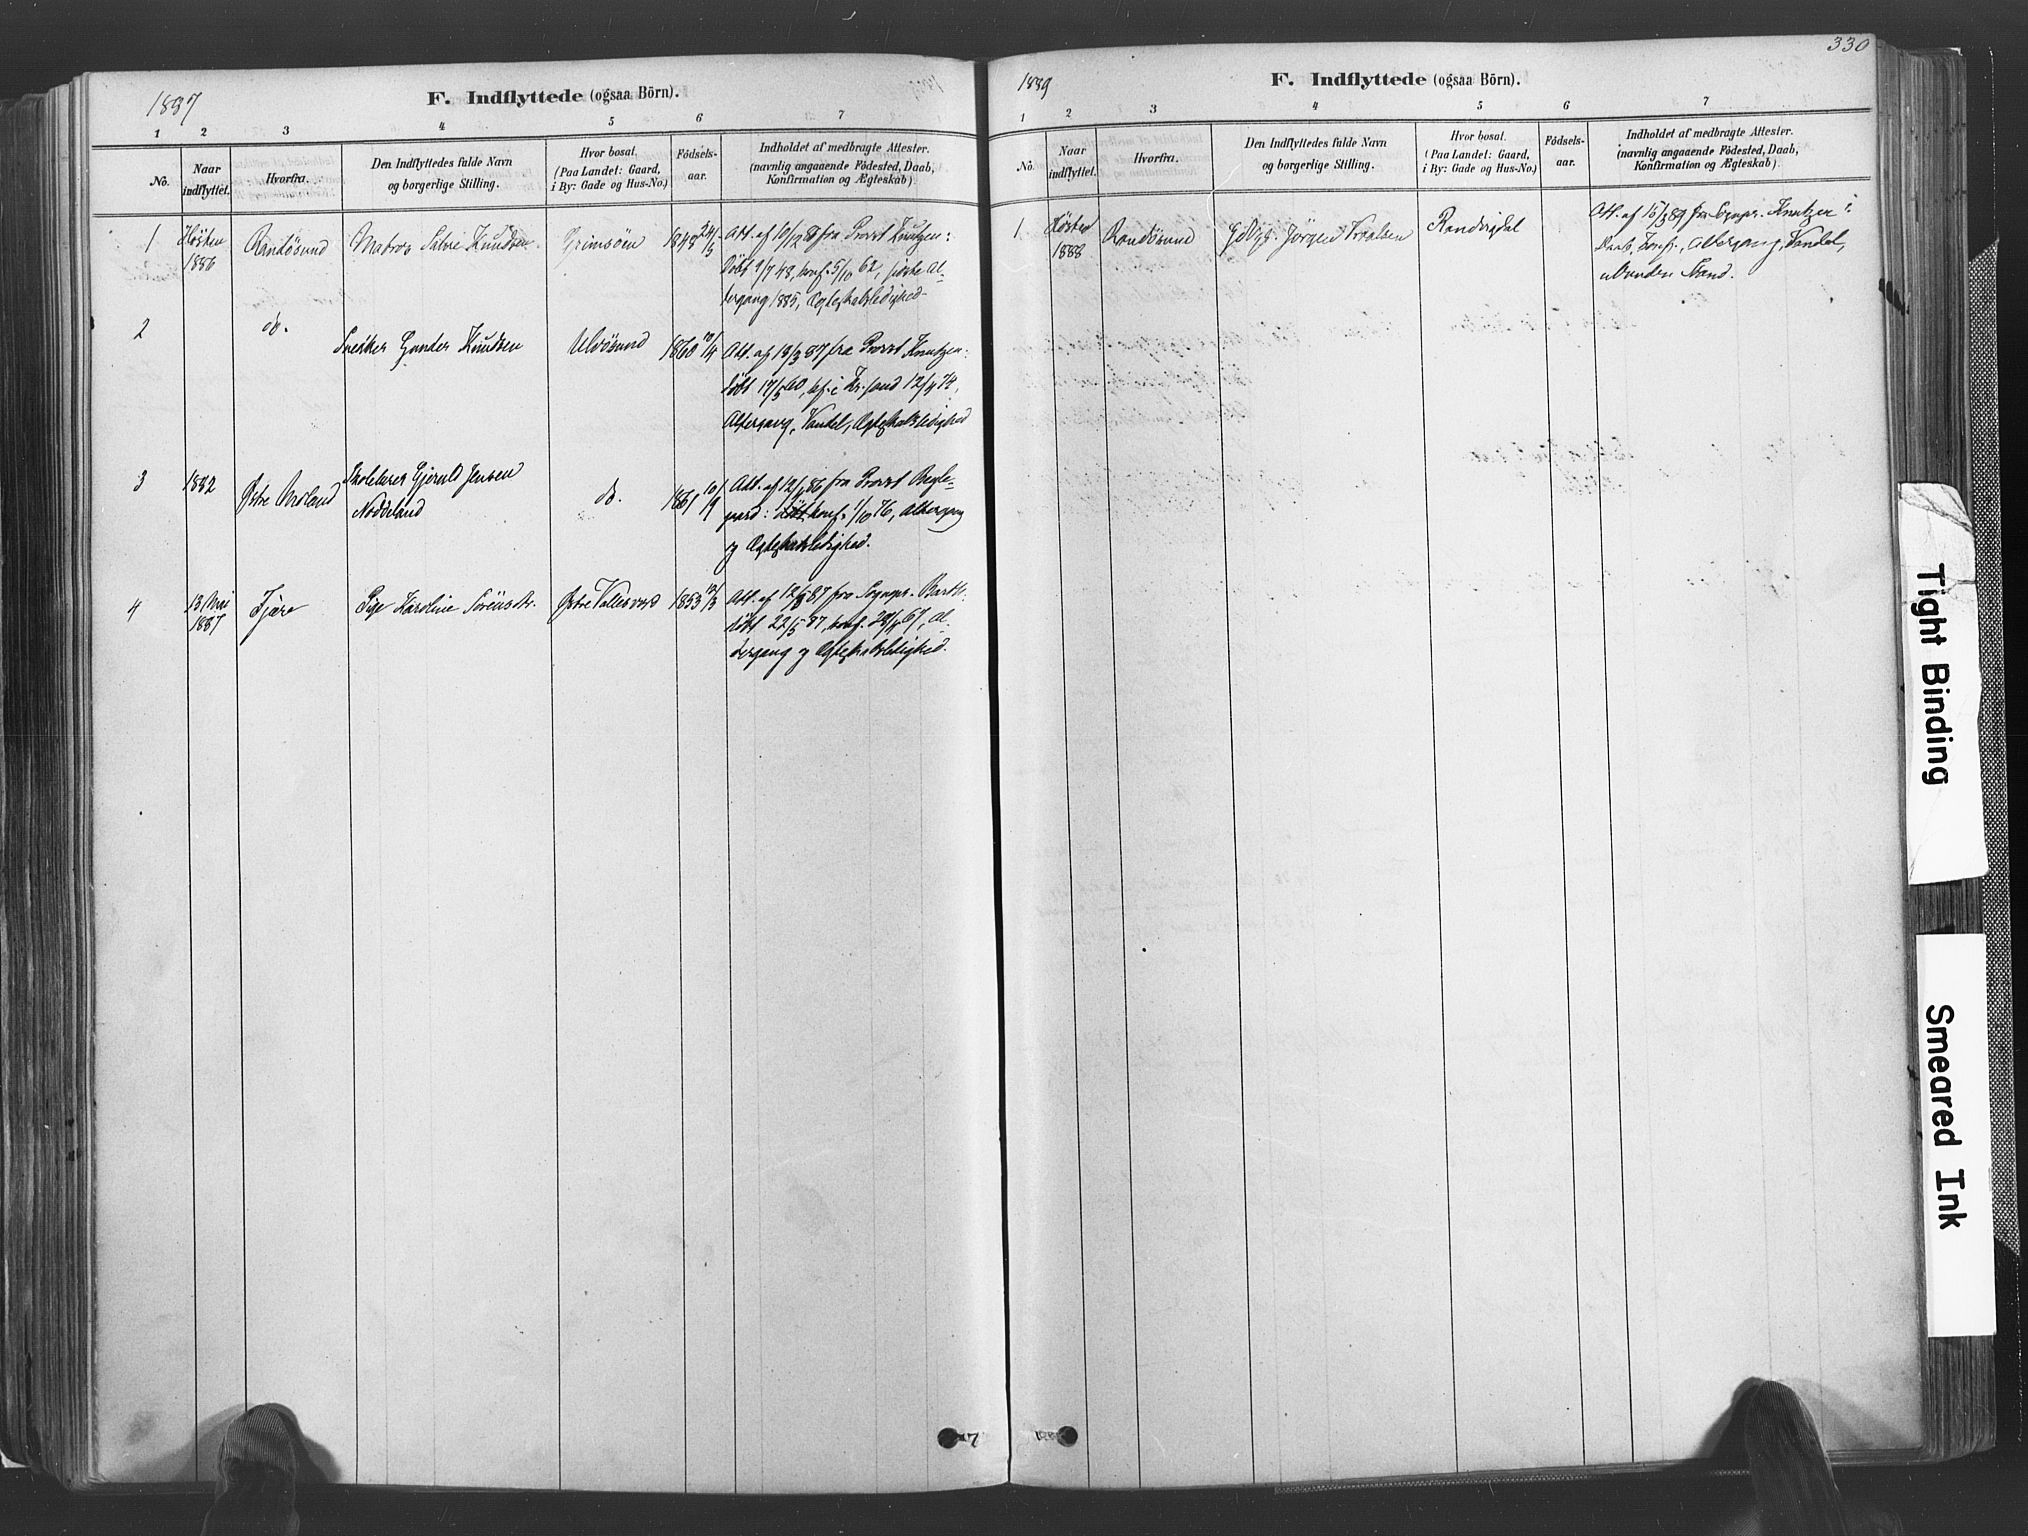 1887
F. Indflyttede (ogsaa Börn).
1 2 3 4 5 6 7
No.
Naar indflyttet.
Hvorfra.
Den Indflyttedes fulde Navn
og borgerlige Stilling.
Hvor bosat.
(Paa Landet: Gaard,
i By: Gade og Hus-No.)
Födsels-
aar.
Indholdet af medbragte Attester.
(navnlig angaaende Födested, Daab,
Konfirmation og Ægteskab)
1 Hösten Randösund Matros Salve Knudsen Grimsöen 1848 24/5 Att. af 10/12 87 fra Provst Knutzen:
1886 Döbt 9/7 48, konf. 5/10 62, sidste Al-
tergang 1885, Ægteskabsledighed
2 do. Snedker Gunder Knudsen Ulvösund 1860 10/4 Att. af 13/3 87 fra Provst Knutzen:
döbt 17/5 60, kf. i Kr.sand 12/4 74,
Altergang, Vandel, Ægteskabsledighed
3 1882 Östre Moland Skolelærer Gjeruld Jensen do. 1861 10/9 Att. af 12/1 86 fra Provst
Noddeland konf. 1/10 76, Altergang
og Ægteskabsledighed.
4 13 Mai Fjære Pige Karoline Sörensdr. Östre Vallesværd 1853 12/3 Att. af 12/5 87 fra Sognepr. Barth:
1887 döbt 22/5 87, konf. 29/9 67, Al-
tergang og Ægteskabsledighed.
330
1889
F. Indflyttede (ogsaa Börn).
1 2 3 4 5 6 7
No.
Naar indflyttet.
Hvorfra.
Den Indflyttedes fulde Navn
og borgerlige Stilling.
Hvor bosat.
(Paa Landet: Gaard,
i By: Gade og Hus-No.)
Födsels-
aar.
Indholdet af medbragte Attester.
(navnlig angaaende Födested, Daab,
Konfirmation og Ægteskab)
1 Hösten Randösund Jörgen Randvigdal Att. af 15/3 89 fra Sognepr. Knutzen:
1888 Daab, Konf., Altergang, Vandel,
Stand.
Tight Binding
Smeared Ink